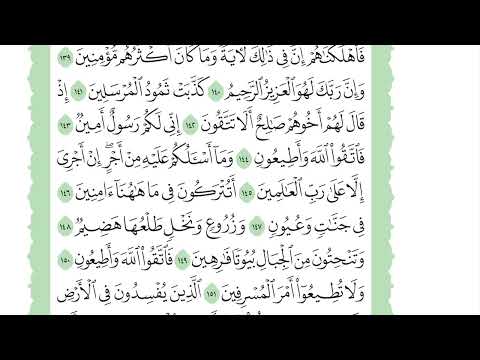 فَأَهْلَكْنَٰهُمْ إِنَّ فِى ذَٰلِكَ لَءَايَةً وَمَا كَانَ أَكْثَرُهُم مُّؤْمِنِينَ ١٣٩
وَإِنَّ رَبَّكَ لَهُوَ ٱلْعَزِيزُ ٱلرَّحِيمُ ١٤٠ كَذَّبَتْ ثَمُودُ ٱلْمُرْسَلِينَ ١٤١ إِذْ
قَالَ لَهُمْ أَخُوهُمْ صَٰلِحٌ أَلَا تَتَّقُونَ ١٤٢ إِنِّى لَكُمْ رَسُولٌ أَمِينٌ ١٤٣
فَٱتَّقُوا۟ ٱللَّهَ وَأَطِيعُونِ ١٤٤ وَمَآ أَسْـَٔلُكُمْ عَلَيْهِ مِنْ أَجْرٍ ۖ إِنْ أَجْرِىَ
إِلَّا عَلَىٰ رَبِّ ٱلْعَٰلَمِينَ ١٤٥ أَتُتْرَكُونَ فِى مَا هَٰهُنَآ ءَامِنِينَ ١٤٦
فِى جَنَّٰتٍ وَعُيُونٍ ١٤٧ وَزُرُوعٍ وَنَخْلٍ طَلْعُهَا هَضِيمٌ ١٤٨
وَتَنْحِتُونَ مِنَ ٱلْجِبَالِ بُيُوتًا فَٰرِهِينَ ١٤٩ فَٱتَّقُوا۟ ٱللَّهَ وَأَطِيعُونِ ١٥٠
وَلَا تُطِيعُوٓا۟ أَمْرَ ٱلْمُسْرِفِينَ ١٥١ ٱلَّذِينَ يُفْسِدُونَ فِى ٱلْأَرْضِ